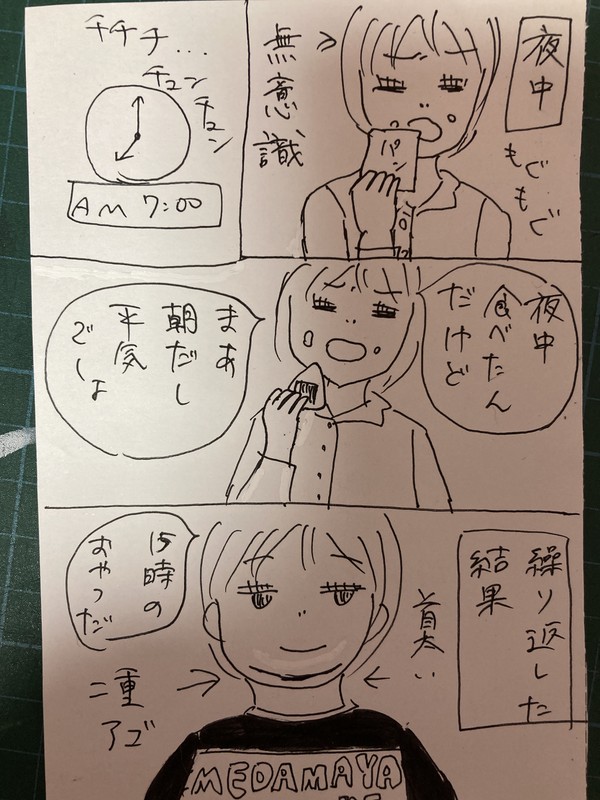 夜中
もぐもぐ
パン
無意識
チチチ…
チュン
チュン
AM 7:00
夜中
食べたん
だけど
まあ
朝だし
平気
でしょ
繰り返した
結果
首太い
15時の
おやつだ
二重
アゴ
MEDAMAYA